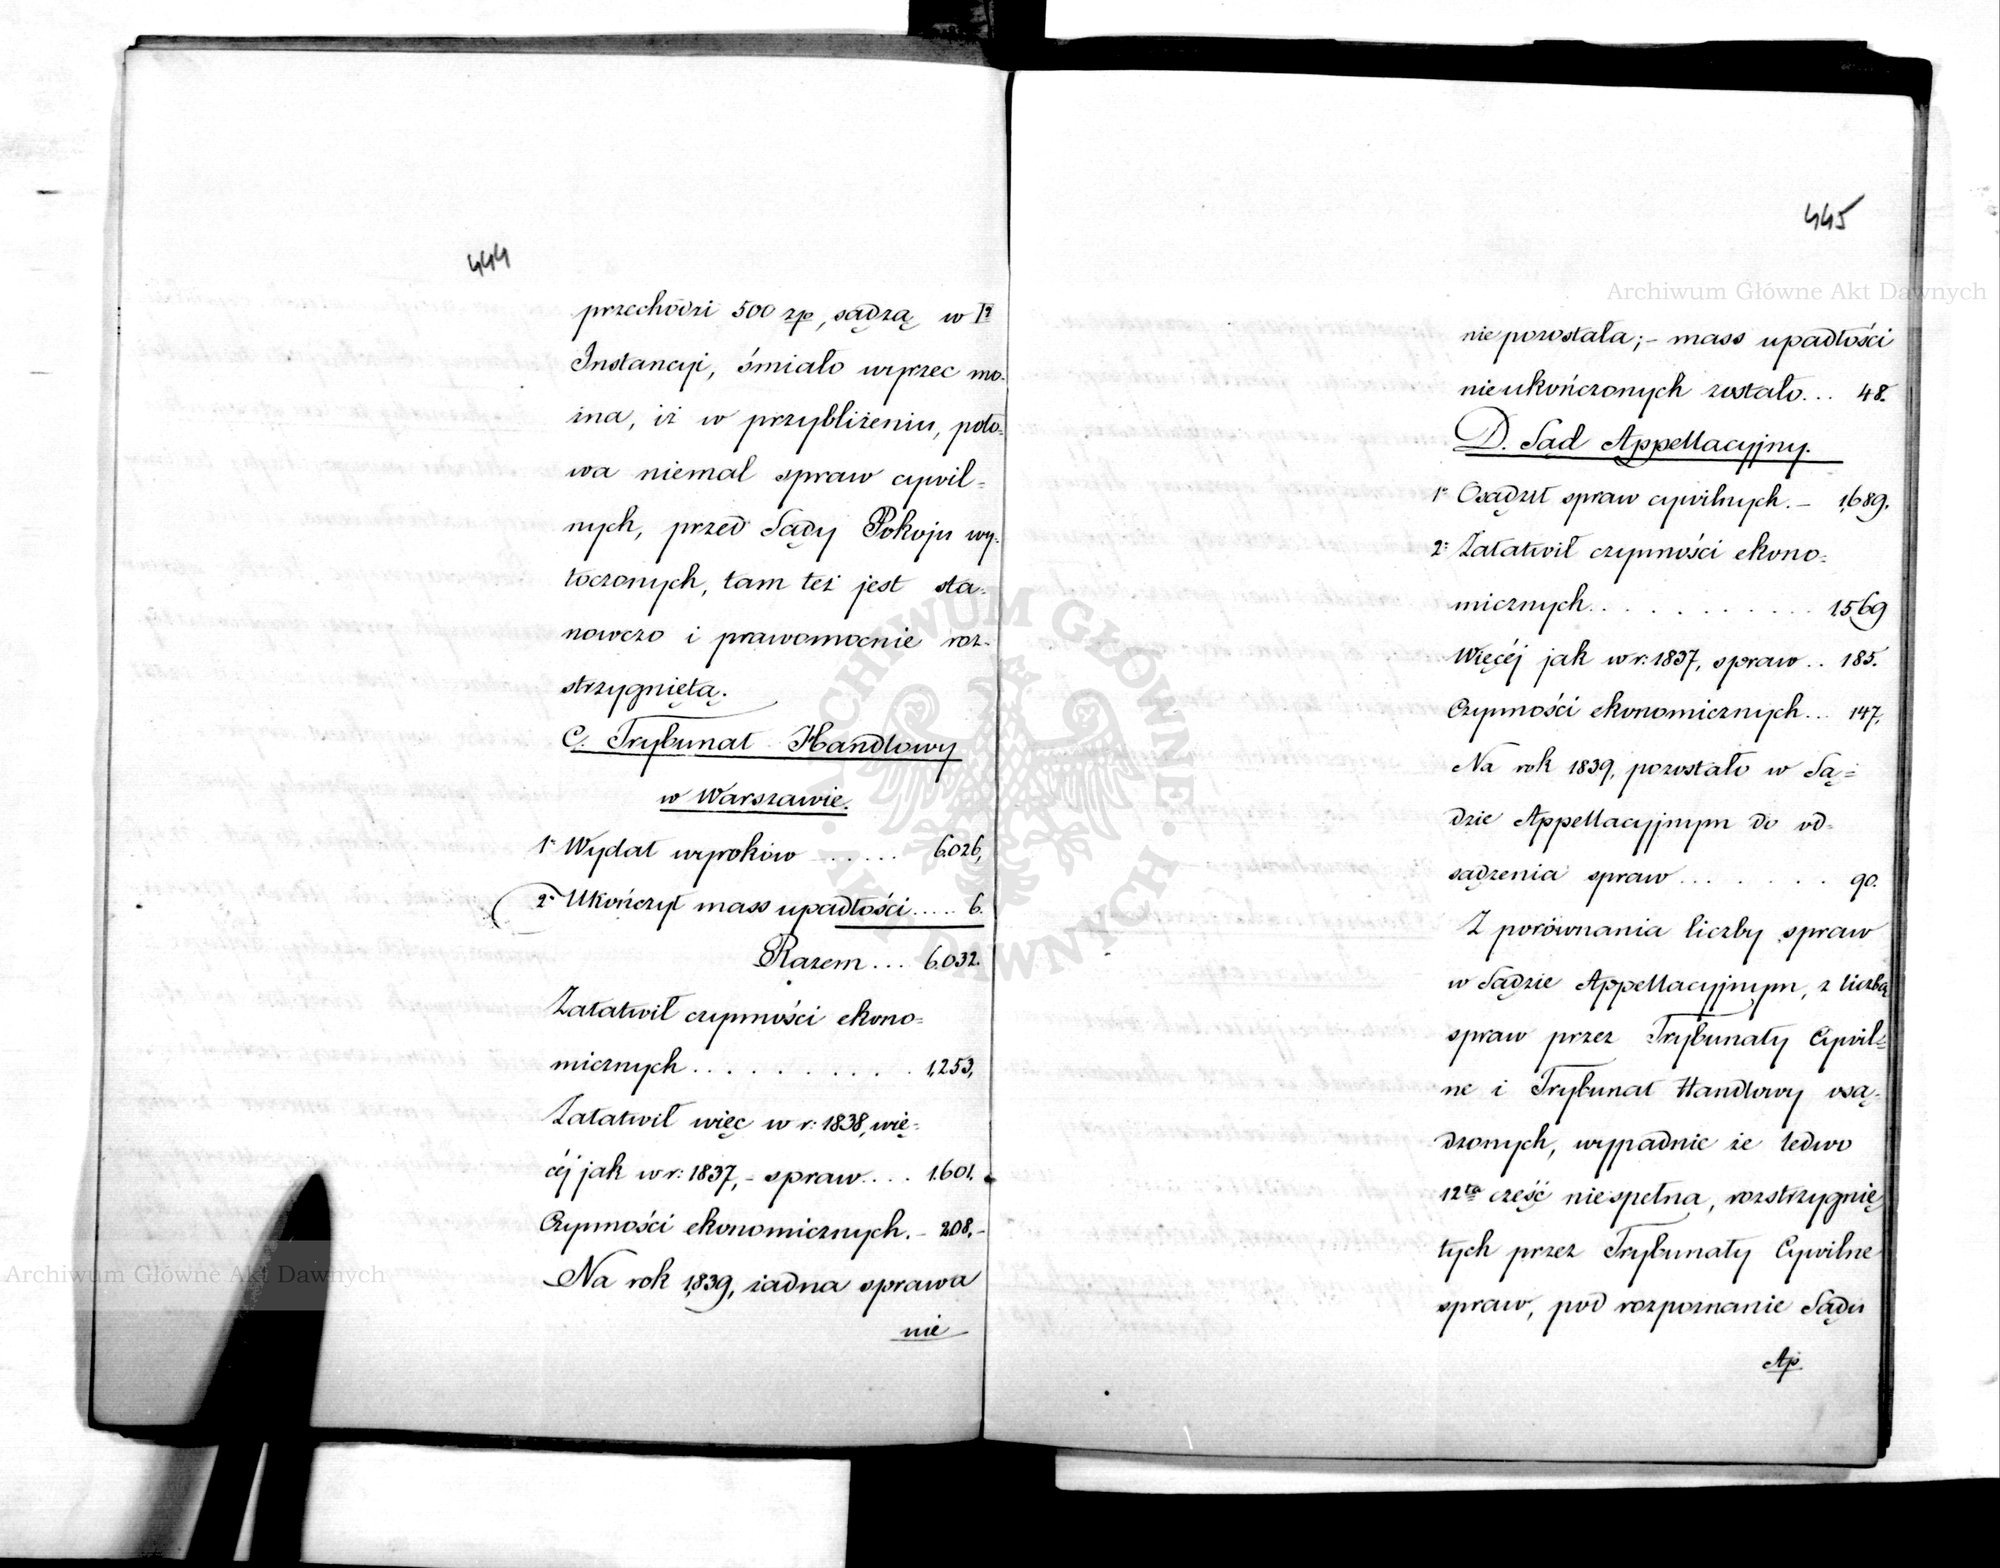 444
przechodzi 500 zp, sądzą w Iª
Instancyi, śmiało wyrzec mo-
żna, iż w przybliżeniu, poło-
wa niemal spraw cywil-
nych, przed Sądy Pokoju wy-
toczonych, tam też jest sta-
nowczo i prawomocnie roz-
strzygniętą.
C. Trybunał Handlowy
w Warszawie.
1º Wydał wyroków ...... 6.026,
2º Ukończył mass upadłości ..... 6.
Razem ... 6.032.
Załatwił czynności ekono-
micznych .......... 1,253,
Załatwił więc w r: 1838, wię-
céj jak w r: 1837, - spraw.... 1.601.
Czynności ekonomicznych. - 208. -
Na rok 1,839, żadna sprawa
nie
445
nie pozostała; - mass upadłości
nieukończonych zostało... 48.
D. Sąd Appellacyjny.
1º Osądził spraw cywilnych. - 1,689.
2º Załatwił czynności ekono-
micznych............ 1569
Więcéj jak w r: 1837, spraw.. 185.
Czynności ekonomicznych... 147,
Na rok 1839, pozostało w Są-
dzie Appellacyjnym do od-
sądzenia spraw....... 90.
Z porównania liczby spraw
w Sądzie Appellacyjnym, z liczbą
spraw przez Trybunały Cywil-
ne i Trybunał Handlowy osą-
dzonych, wypadnie że ledwo
12ta część niespełna, rozstrzygnię
tych przez Trybunały Cywilne
spraw, pod rozpoznanie Sądu
Ap
Archiwum Główne Akt Dawnych
Archiwum Główne Akt Dawnych
ARCHIWUM GŁÓWNE AKT DAWNYCH